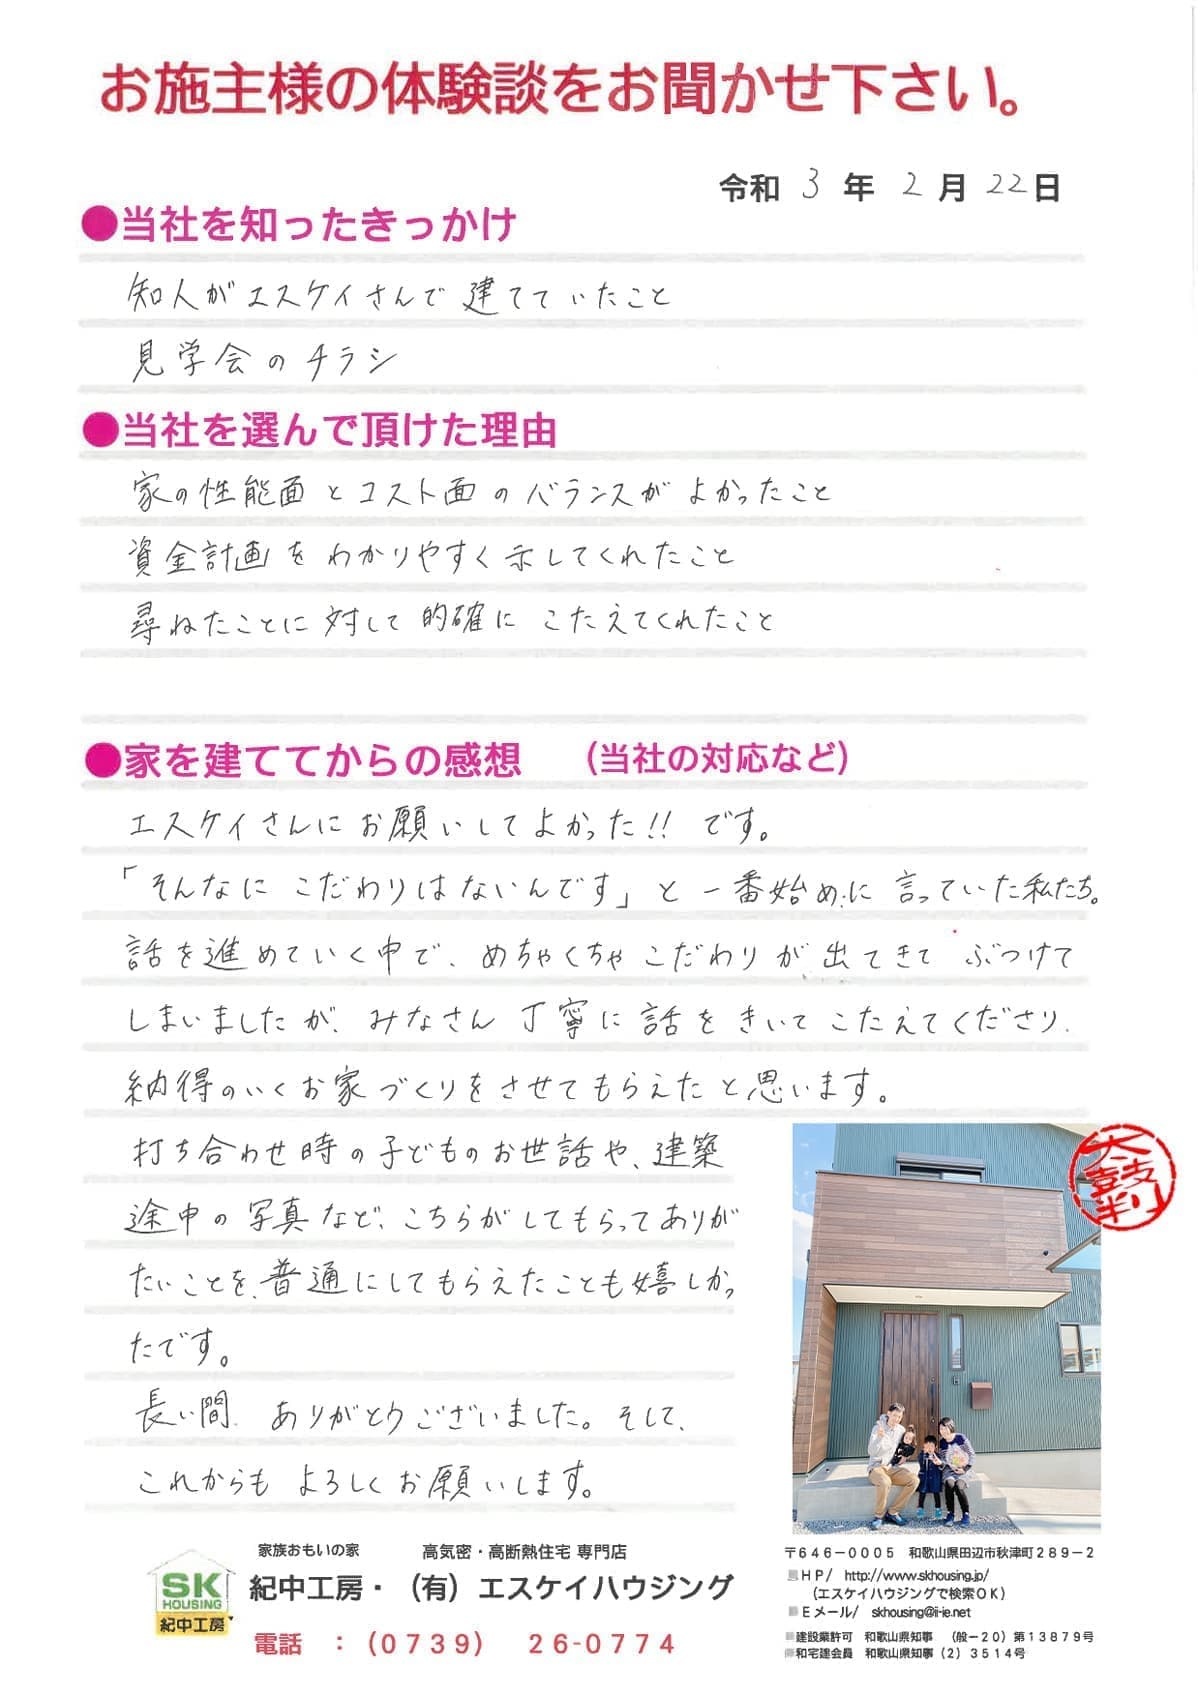 お施主様の体験談をお聞かせ下さい。
令和 3 年 2 月 22日
●当社を知ったきっかけ
知人がエスケイさんで建てていたこと
見学会のチラシ
●当社を選んで頂けた理由
家の性能面とコスト面のバランスがよかったこと
資金計画をわかりやすく示してくれたこと
尋ねたことに対して的確にこたえてくれたこと
●家を建ててからの感想 (当社の対応など)
エスケイさんにお願いしてよかった!! です。
「そんなにこだわりはないんです」と一番始めに言っていた私たち。
話を進めていく中で、めちゃくちゃこだわりが出てきてぶつけて
しまいましたが、みなさん丁寧に話をきいてこたえてくださり、
納得のいくお家づくりをさせてもらえたと思います。
打ち合わせ時の子どものお世話や、建築
途中の写真など、こちらがしてもらってありが
たいことを、普通にしてもらえたことも嬉しかっ
たです。
長い間、ありがとうございました。そして、
これからもよろしくお願いします。
太鼓判
家族おもいの家 高気密・高断熱住宅 専門店
SK
HOUSING
紀中工房
紀中工房・(有)エスケイハウジング
電話 :(0739) 26-0774
〒646-0005 和歌山県田辺市秋津町289-2
HP/ http://www.skhousing.jp/
(エスケイハウジングで検索OK)
Eメール/ skhousing@ii-ie.net
建設業許可 和歌山県知事 (般-20)第13879号
和宅建会員 和歌山県知事(2)3514号